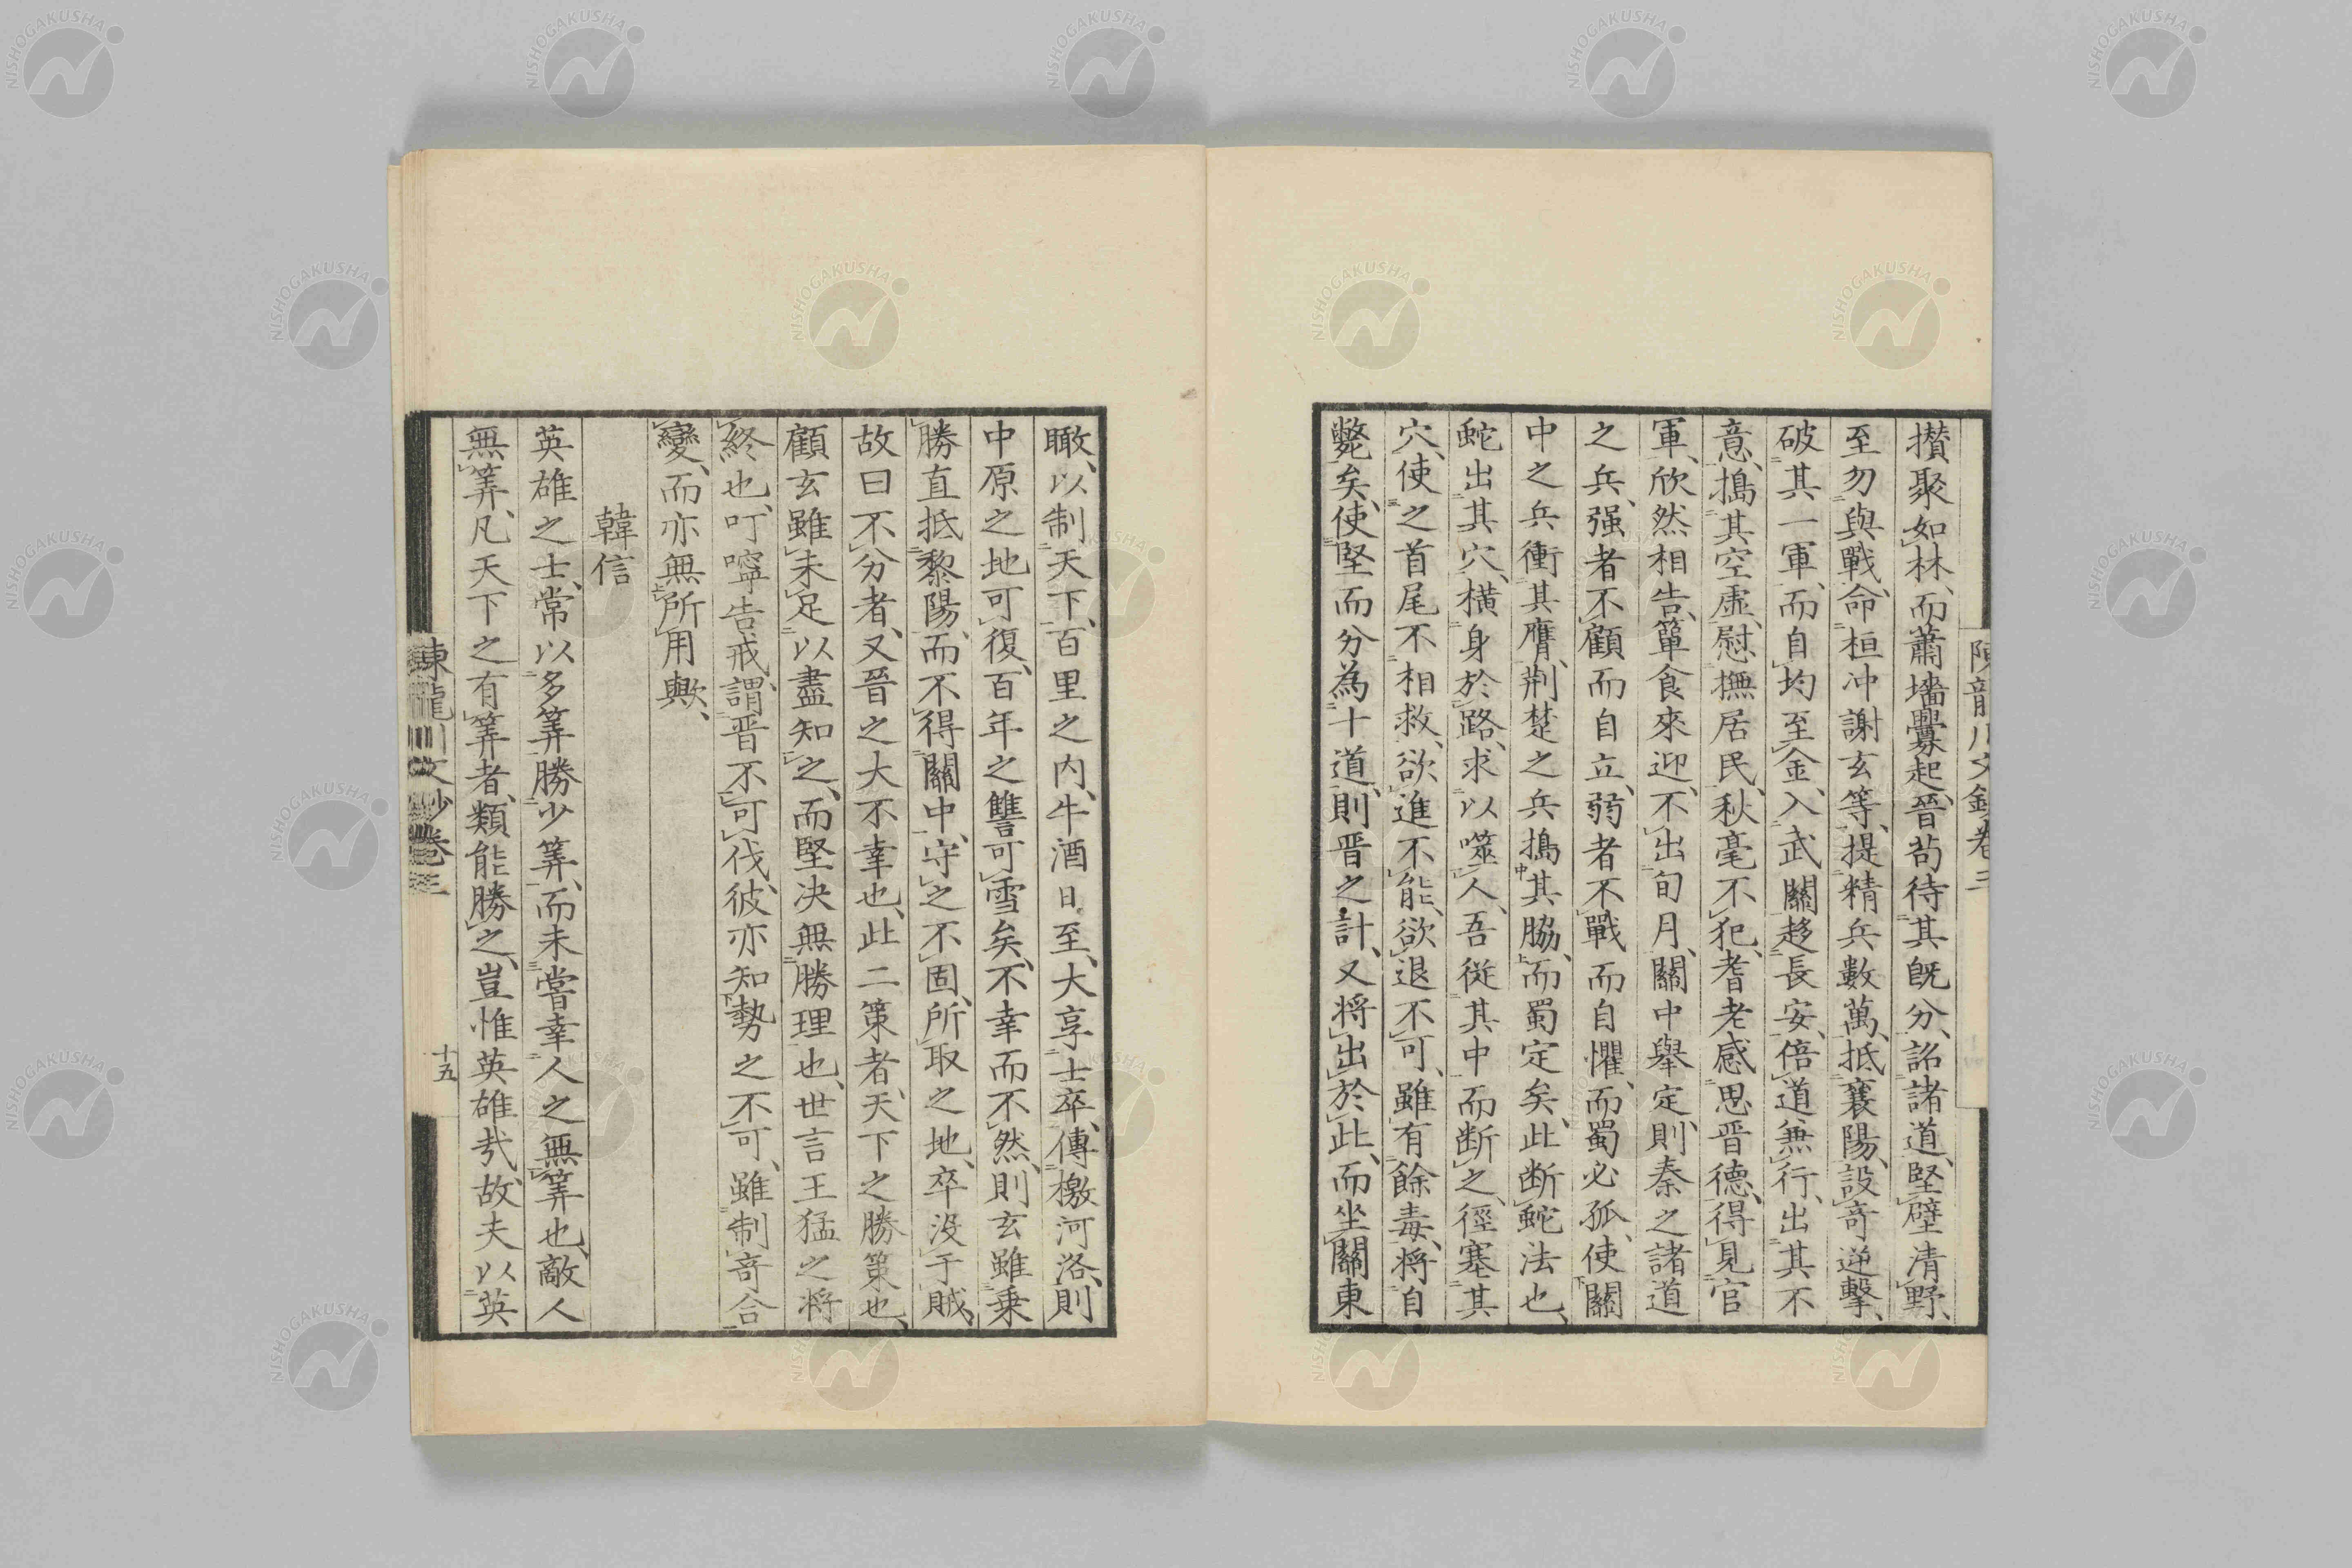 陳龍川文鈔卷三
攅聚如林、而蕭墻釁起、晉苟待其既分、詔諸道、堅壁清野、
至勿與戰、命桓冲謝玄等、提精兵數萬、抵襄陽、設奇逆擊、
破其一軍、而自均至金、入武關趍長安、倍道兼行、出其不
意、搗其空虛、慰撫居民、秋毫不犯、耆老感思晉德、得見官
軍、欣然相告、簞食來迎、不出旬月、關中舉定、則秦之諸道
之兵、强者不顧而自立、弱者不戰而自懼、而蜀必孤、使關
中之兵衝其膺、荆楚之兵搗其脇、而蜀定矣、此断蛇法也、
蛇出其穴、橫身於路、求以噬人、吾從其中而断之、徑塞其
穴、使之首尾不相救、欲進不能、欲退不可、雖有餘毒、將自
斃矣、使堅而分為十道、則晋之計、又將出於此、而坐關東
瞰、以制天下、百里之内、牛酒日至、大享士卒、傳檄河洛、則
中原之地可復、百年之讐可雪矣、不幸而不然、則玄雖乗
勝直抵黎陽、而不得關中、守之不固、所取之地、卒没于賊、
故曰不分者、又晉之大不幸也、此二策者、天下之勝策也、
顧玄雖未足以盡知之、而堅决無勝理也、世言王猛之將
終也、叮嚀告戒、謂晋不可伐、彼亦知勢之不可、雖制奇合
變、而亦無所用歟、
韓信
英雄之士、常以多筭勝少筭、而未嘗幸人之無筭也、敵人
無筭、凡天下之有筭者、類能勝之、豈惟英雄㢤、故夫以英
陳龍川文鈔卷三
十五
NISHOGAKUSHA